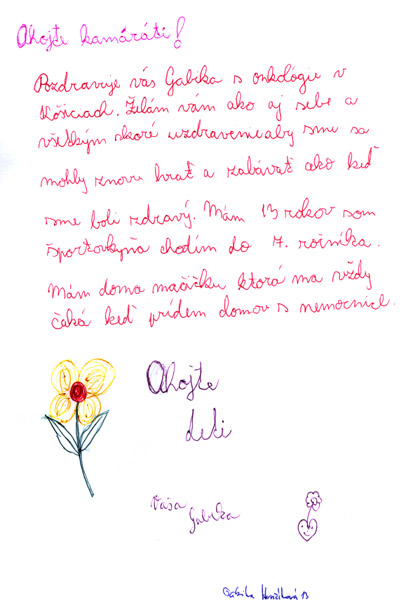 Ahojte kamaráti!
Pozdravuje vás Gabika s onkológie v
Košiciach. Želám vám ako aj sebe a
všetkým skoré uzdravenie aby sme sa
mohly znovu hrať a zabávať ako keď
sme boli zdravý. Mám 13 rokov som
športovkyňa chodím do 7. ročníka.
Mám doma mačičku ktorá ma vždy
čaká keď prídem domov s nemocnice.
Ahojte
deti
Vaša
Gabika